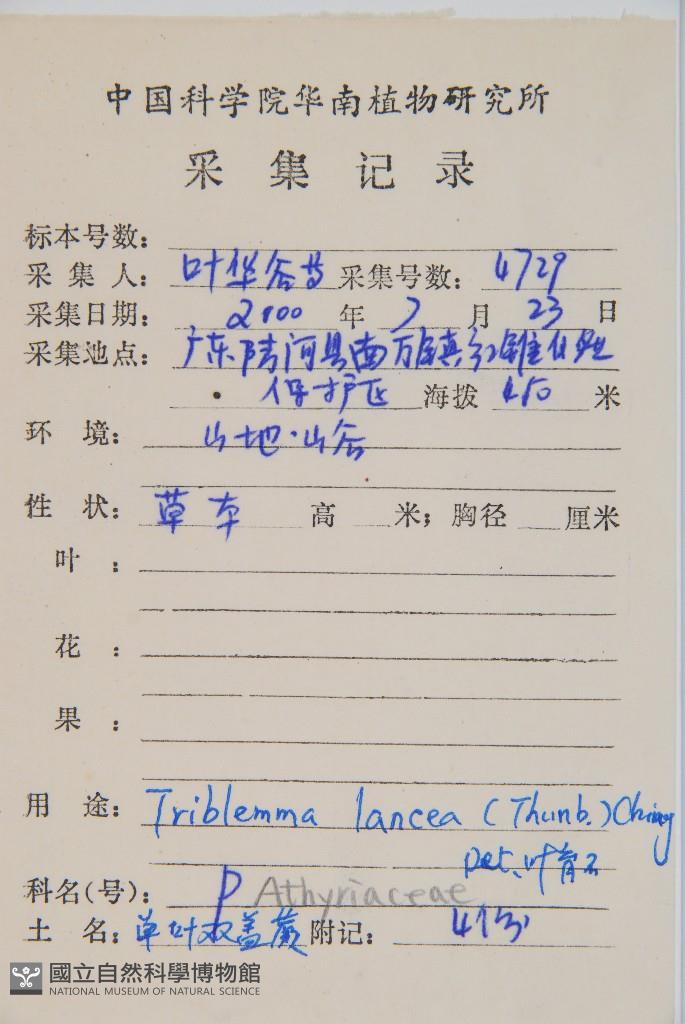 中国科学院华南植物研究所
采集记录
标本号数：
采集人：叶华谷等 采集号数：4729
采集日期：2000 年 7 月 23 日
采集地点：广东陆河县南万镇红锥林
保护区 海拔 450 米
环境：山地·山谷
性状：草本 高 米；胸径 厘米
叶：
花：
果：
用途：Triblemma lancea (Thunb.) Ching
Det. 叶育石
科名(号)：P Athyriaceae
土名：单叶双盖蕨 附记：4份
國立自然科學博物館
NATIONAL MUSEUM OF NATURAL SCIENCE